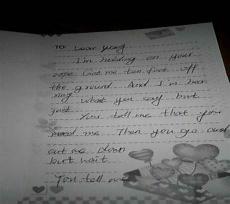 TO: Dear
I'm holding on your
rope Got me ten feet off
the ground And I'm hear
ing what you say but
just
You tell me that you
need me Then you go and
cut me down
but wait
You tell me